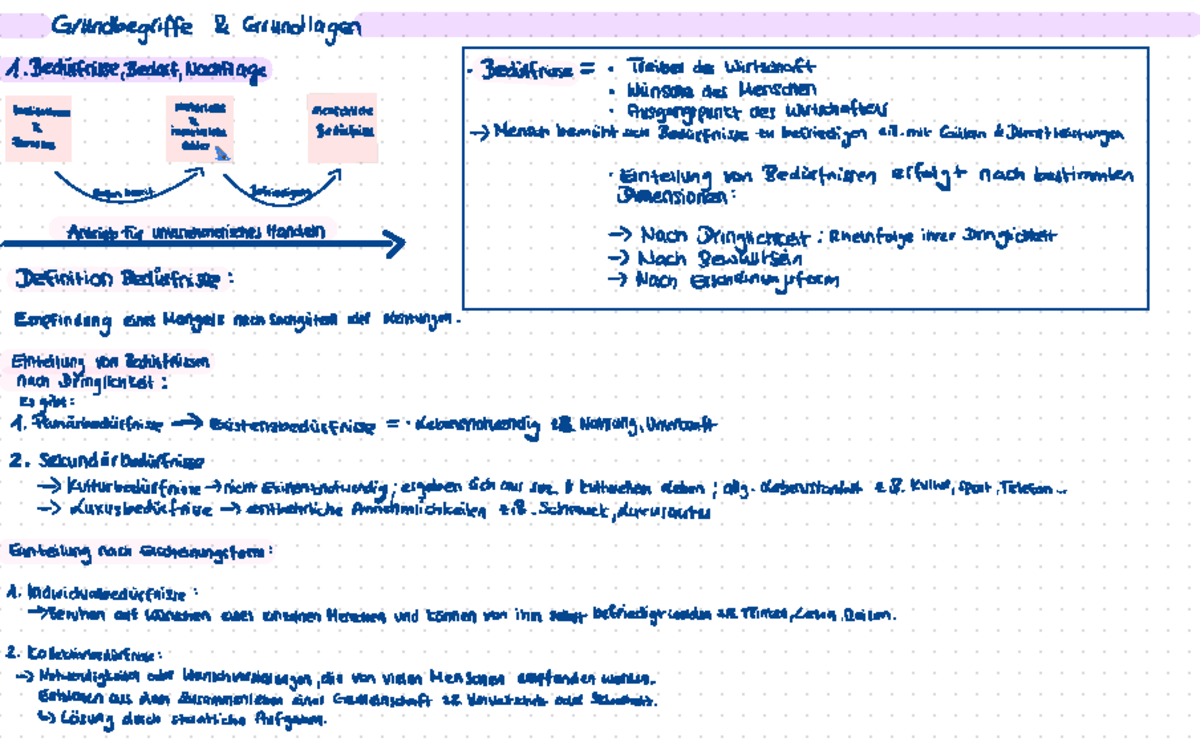 Grundbegriffe & Grundlagen
1. Bedürfnisse, Bedarf, Nachfrage
materielle
&
immaterielle
Güter
menschliche
Bedürfnisse
Befriedigung
Antrieb für unternehmerisches Handeln
· Bedürfnisse = · Treiber der Wirtschaft
· Wünsche des Menschen
· Ausgangspunkt des Wirtschaftens
→ Mensch bemüht sich Bedürfnisse zu befriedigen z.B. mit Gütern & Dienstleistungen
· Einteilung von Bedürfnissen erfolgt nach bestimmten
Dimensionen:
→ Nach Dringlichkeit: Rheinfolge ihrer Dringlichkeit
→ Nach Bewußtsein
→ Nach Erscheinungsform
Definition Bedürfnisse:
Empfindung eines Mangels nach Sachgütern
Einteilung von Bedürfnissen
nach Dringlichkeit:
Es gibt:
1. Primärbedürfnisse → Existensbedürfnisse = · Lebensnotwendig z.B. Nahrung, Unterkunft
2. Sekundärbedürfnisse
→ Kulturbedürfnisse → nicht Existenznotwendig; ergeben sich aus soz. & kulturellen Leben; allg. Lebensstandart z.B. Kultur, Sport, Telefon..
→ Luxusbedürfnisse → entbehrliche Annehmlichkeiten z.B. Schmuck, Luxusautos
Einteilung nach Erscheinungsform:
1. Individualbedürfnisse:
→ Beruhen auf Wünschen eines einzelnen Menschen und können von ihm selbst befriedigt werden z.B. Trinken, Lesen, Reisen.
2. Kollektivbedürfnisse:
→ Notwendigkeiten oder Wunschvorstellungen, die von vielen Menschen empfunden werden.
Entstehen aus dem Zusammenleben einer Gemeinschaft z.B. Umweltschutz oder Sicherheit.
↳ Lösung durch staatliche Aufgaben.